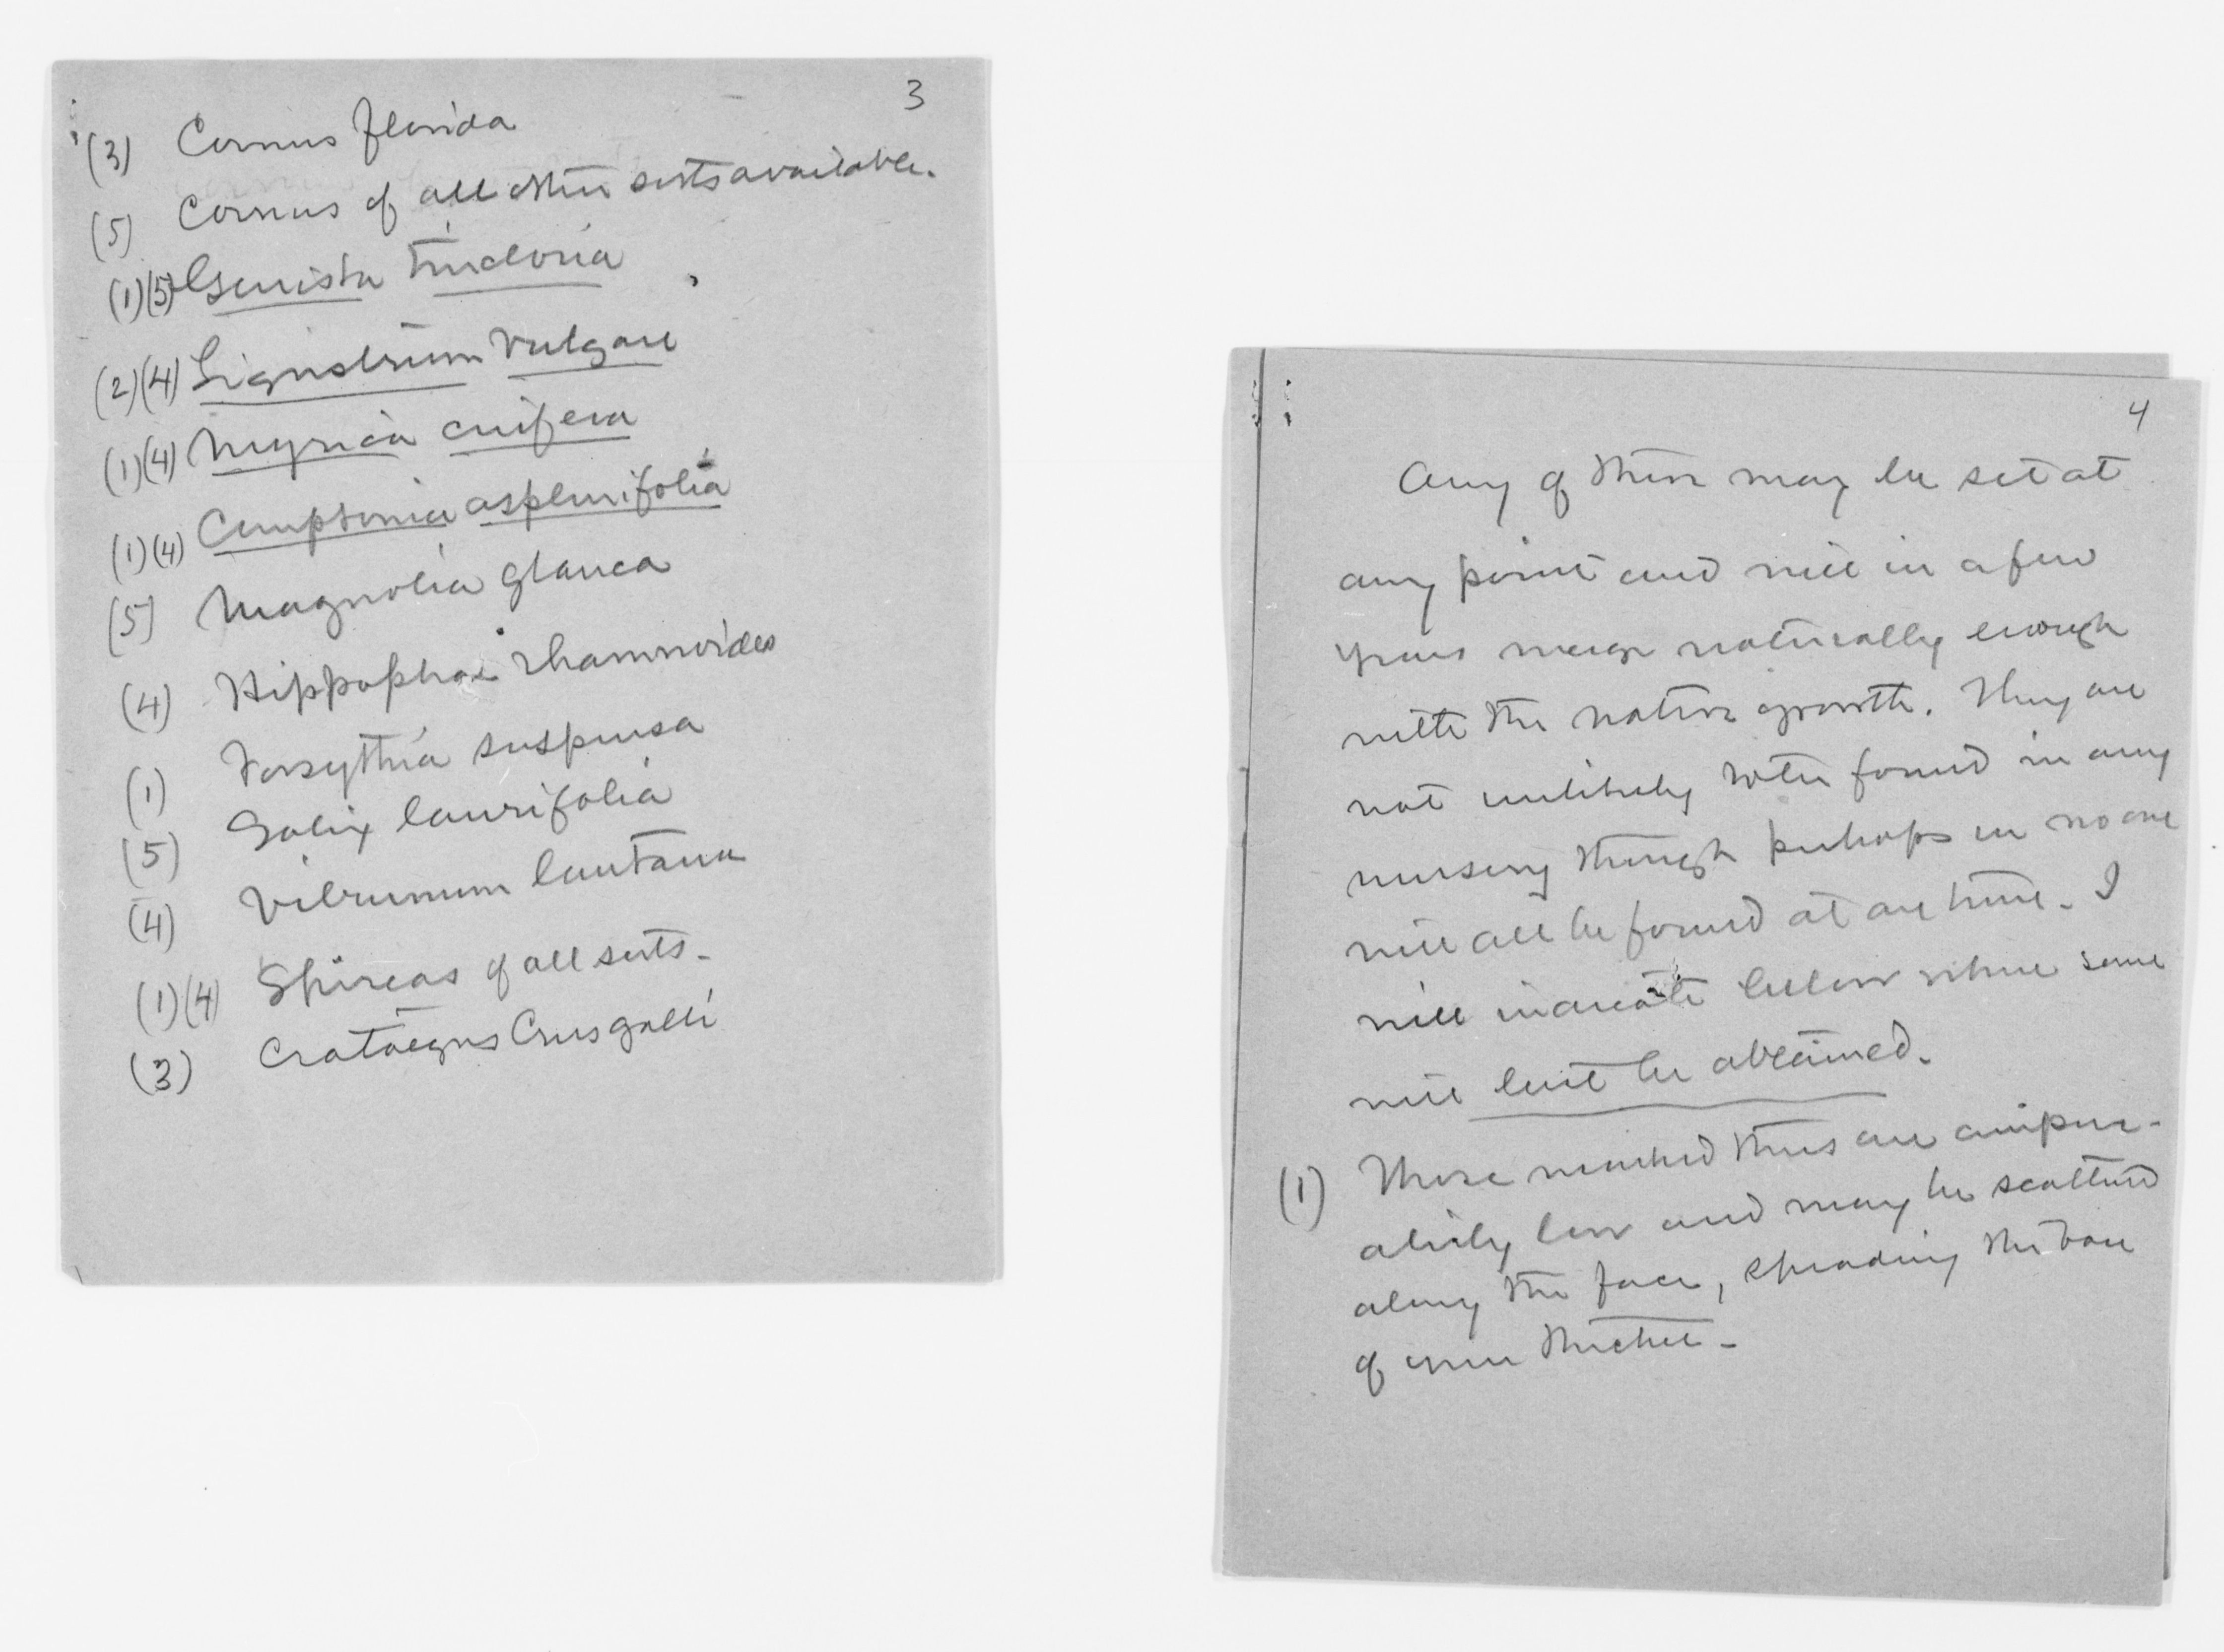 3
(3) Cornus florida
(5) Cornus of all other sorts available.
(1)(5) Genista tinctoria
(2)(4) Ligustrum vulgare
(1)(4) Myrica cerifera
(1)(4) Comptonia asplenifolia
(5) Magnolia glauca
(4) Hippophae rhamnoides
(1) Forsythia suspensa
(5) Salix laurifolia
(4) Viburnum lantana
(1)(4) Spireas of all sorts.
(3) Crataegus Crusgalli
4
Any of these may be set at
any point and will in a few
years merge naturally enough
with the native growth. They are
not unlikely to be found in any
nursery though perhaps in no one
will all be found at one time. I
will indicate below where some
will best be obtained.
(1) Those marked thus are compar-
atively low and may be scattered
along the face, spreading the base
of your thicket.